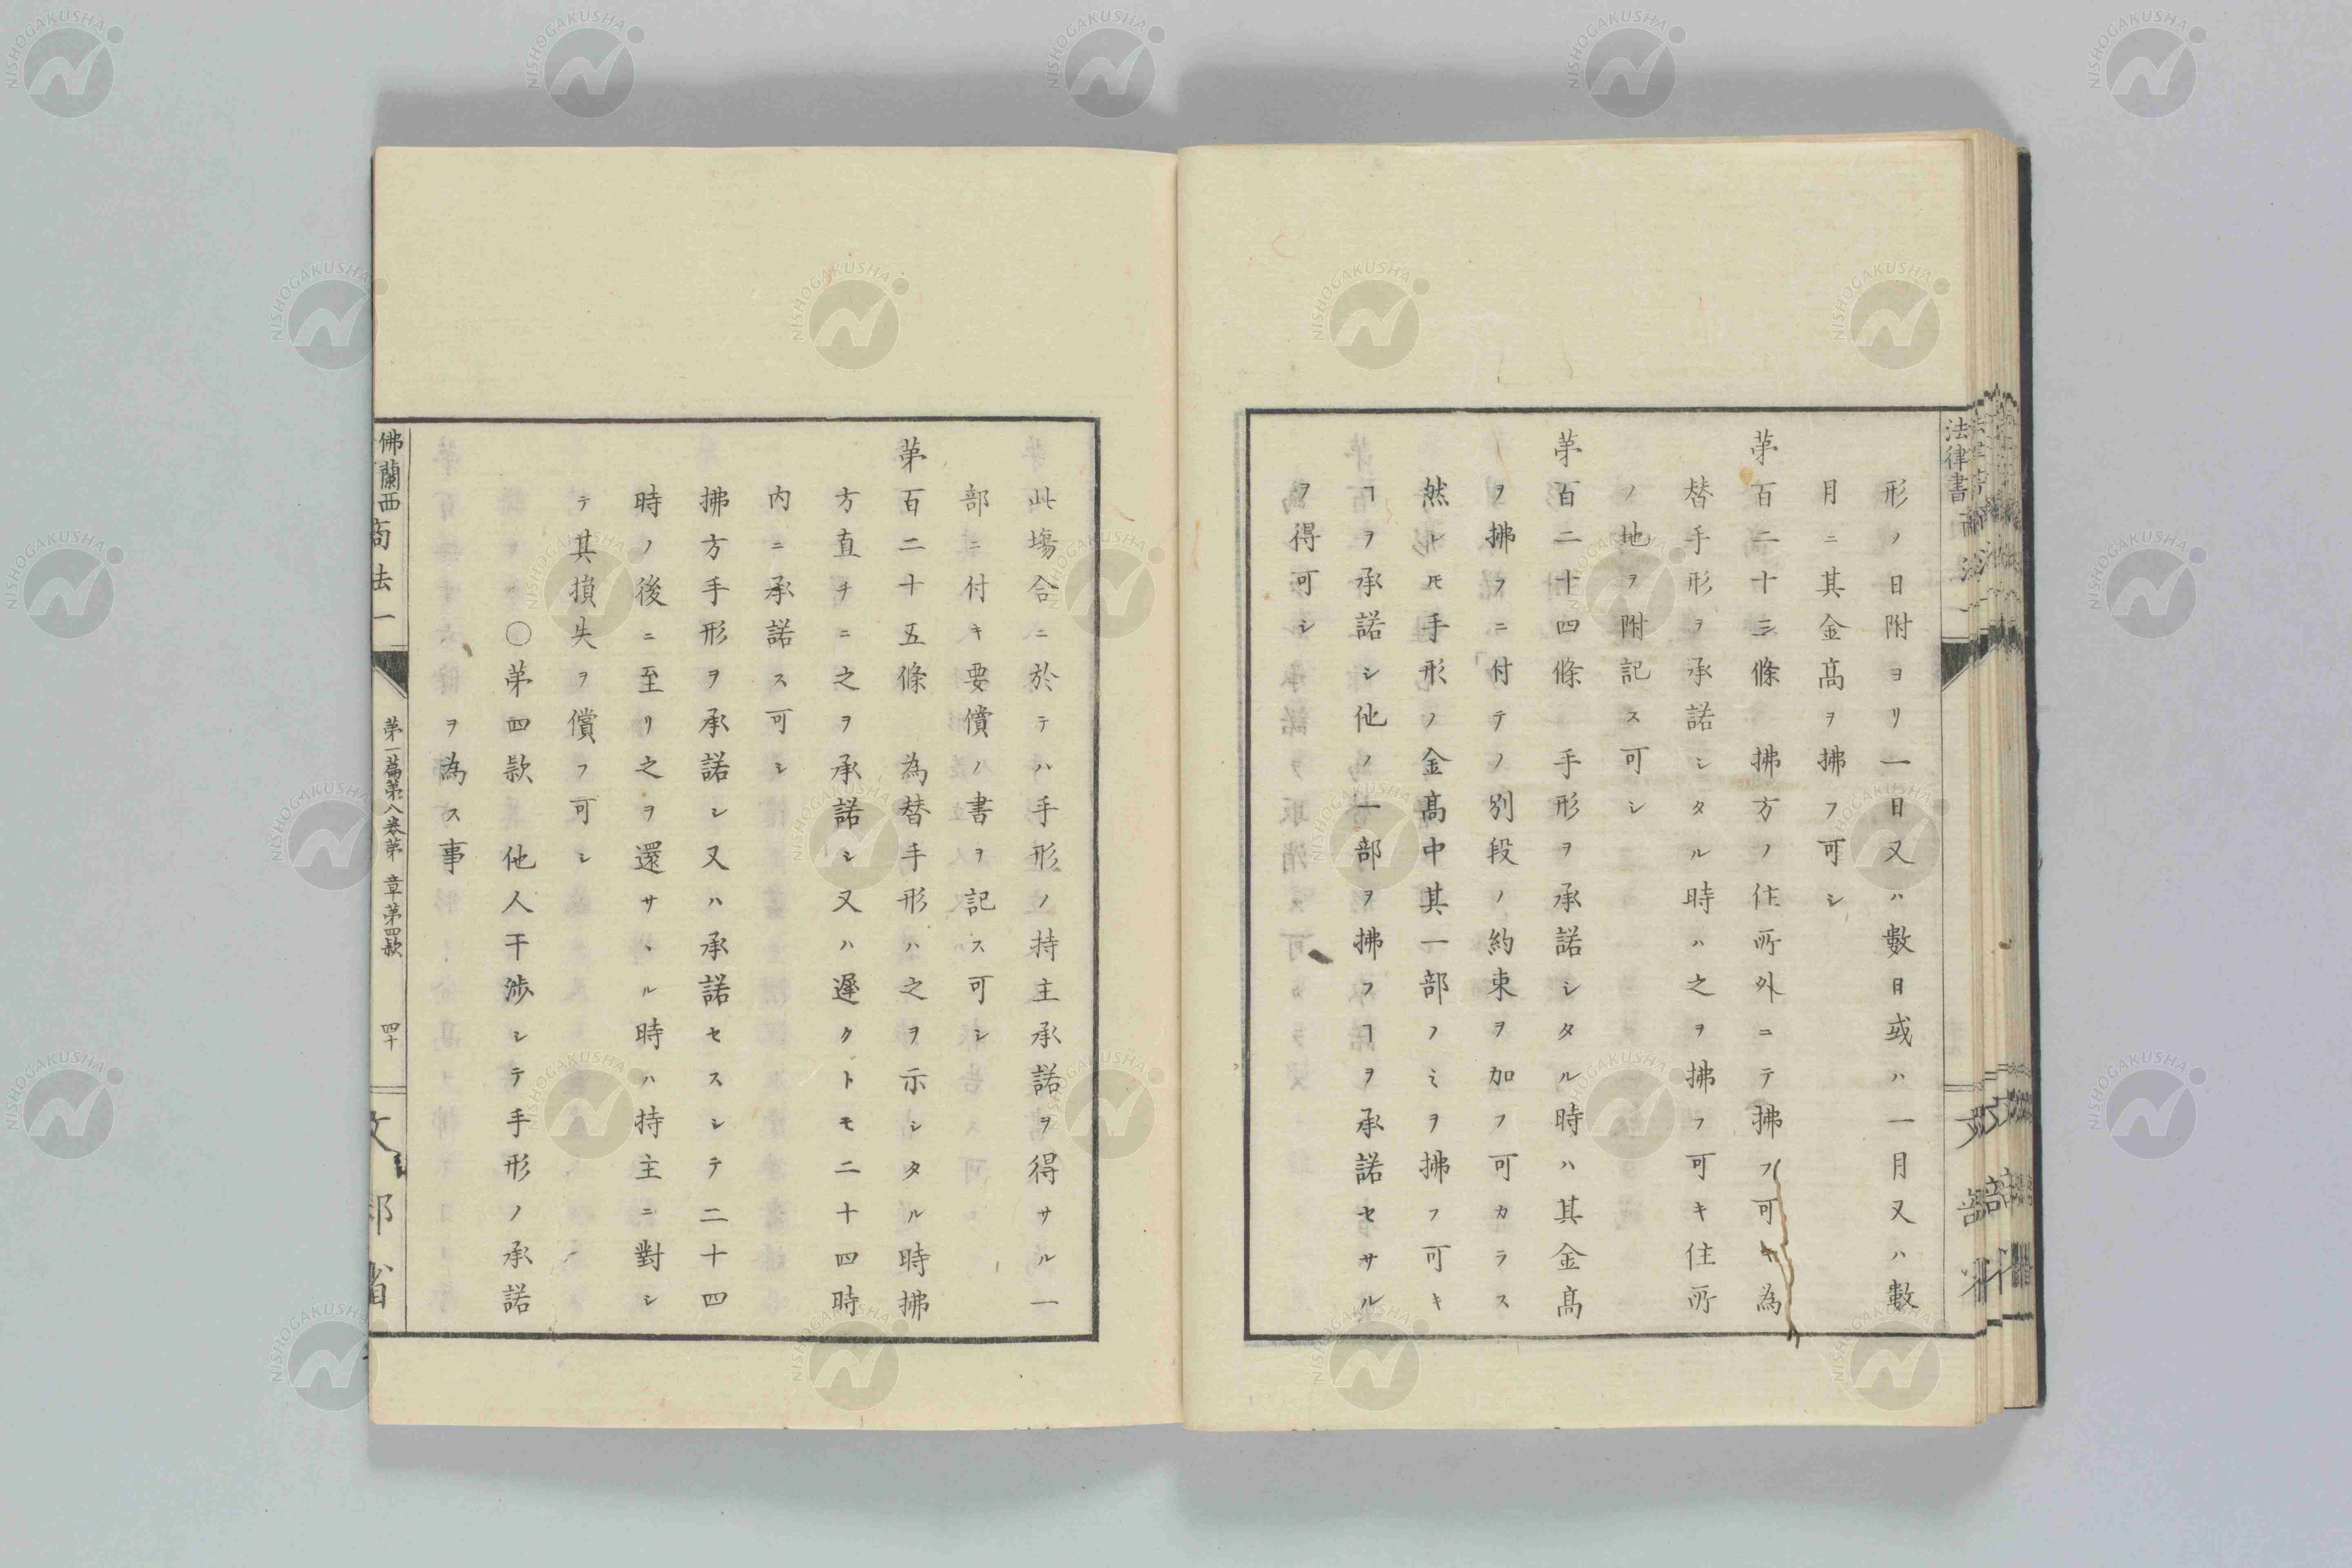 形ノ日附ヨリ一日又ハ數日或ハ一月又ハ數
月ニ其金髙ヲ拂フ可シ
苐百二十三條　拂方ノ住所外ニテ拂フ可キ為
替手形ヲ承諾シタル時ハ之ヲ拂フ可キ住所
ノ地ヲ附記ス可シ
苐百二十四條　手形ヲ承諾シタル時ハ其金髙
ヲ拂フニ付テノ別段ノ約束ヲ加フ可カラス
然レ𪜈手形ノ金髙中其一部ノミヲ拂フ可キ
ヿヲ承諾シ他ノ一部ヲ拂フヿヲ承諾セサル
ヲ得可シ
此塲合ニ於テハ手形ノ持主承諾ヲ得サル一
部ニ付キ要償ノ書ヲ記ス可シ
苐百二十五條　為替手形ハ之ヲ示シタル時拂
方直チニ之ヲ承諾シ又ハ遲クトモ二十四時
内ニ承諾ス可シ
拂方手形ヲ承諾シ又ハ承諾セスシテ二十四
時ノ後ニ至リ之ヲ還サヽル時ハ持主ニ對シ
テ其損失ヲ償フ可シ
〇苐四款　他人干渉シテ手形ノ承諾
ヲ為ス事
佛蘭西商法一
第一篇第八卷第　章第四款
四十
文部省
法律書
NISHOGAKUSHA